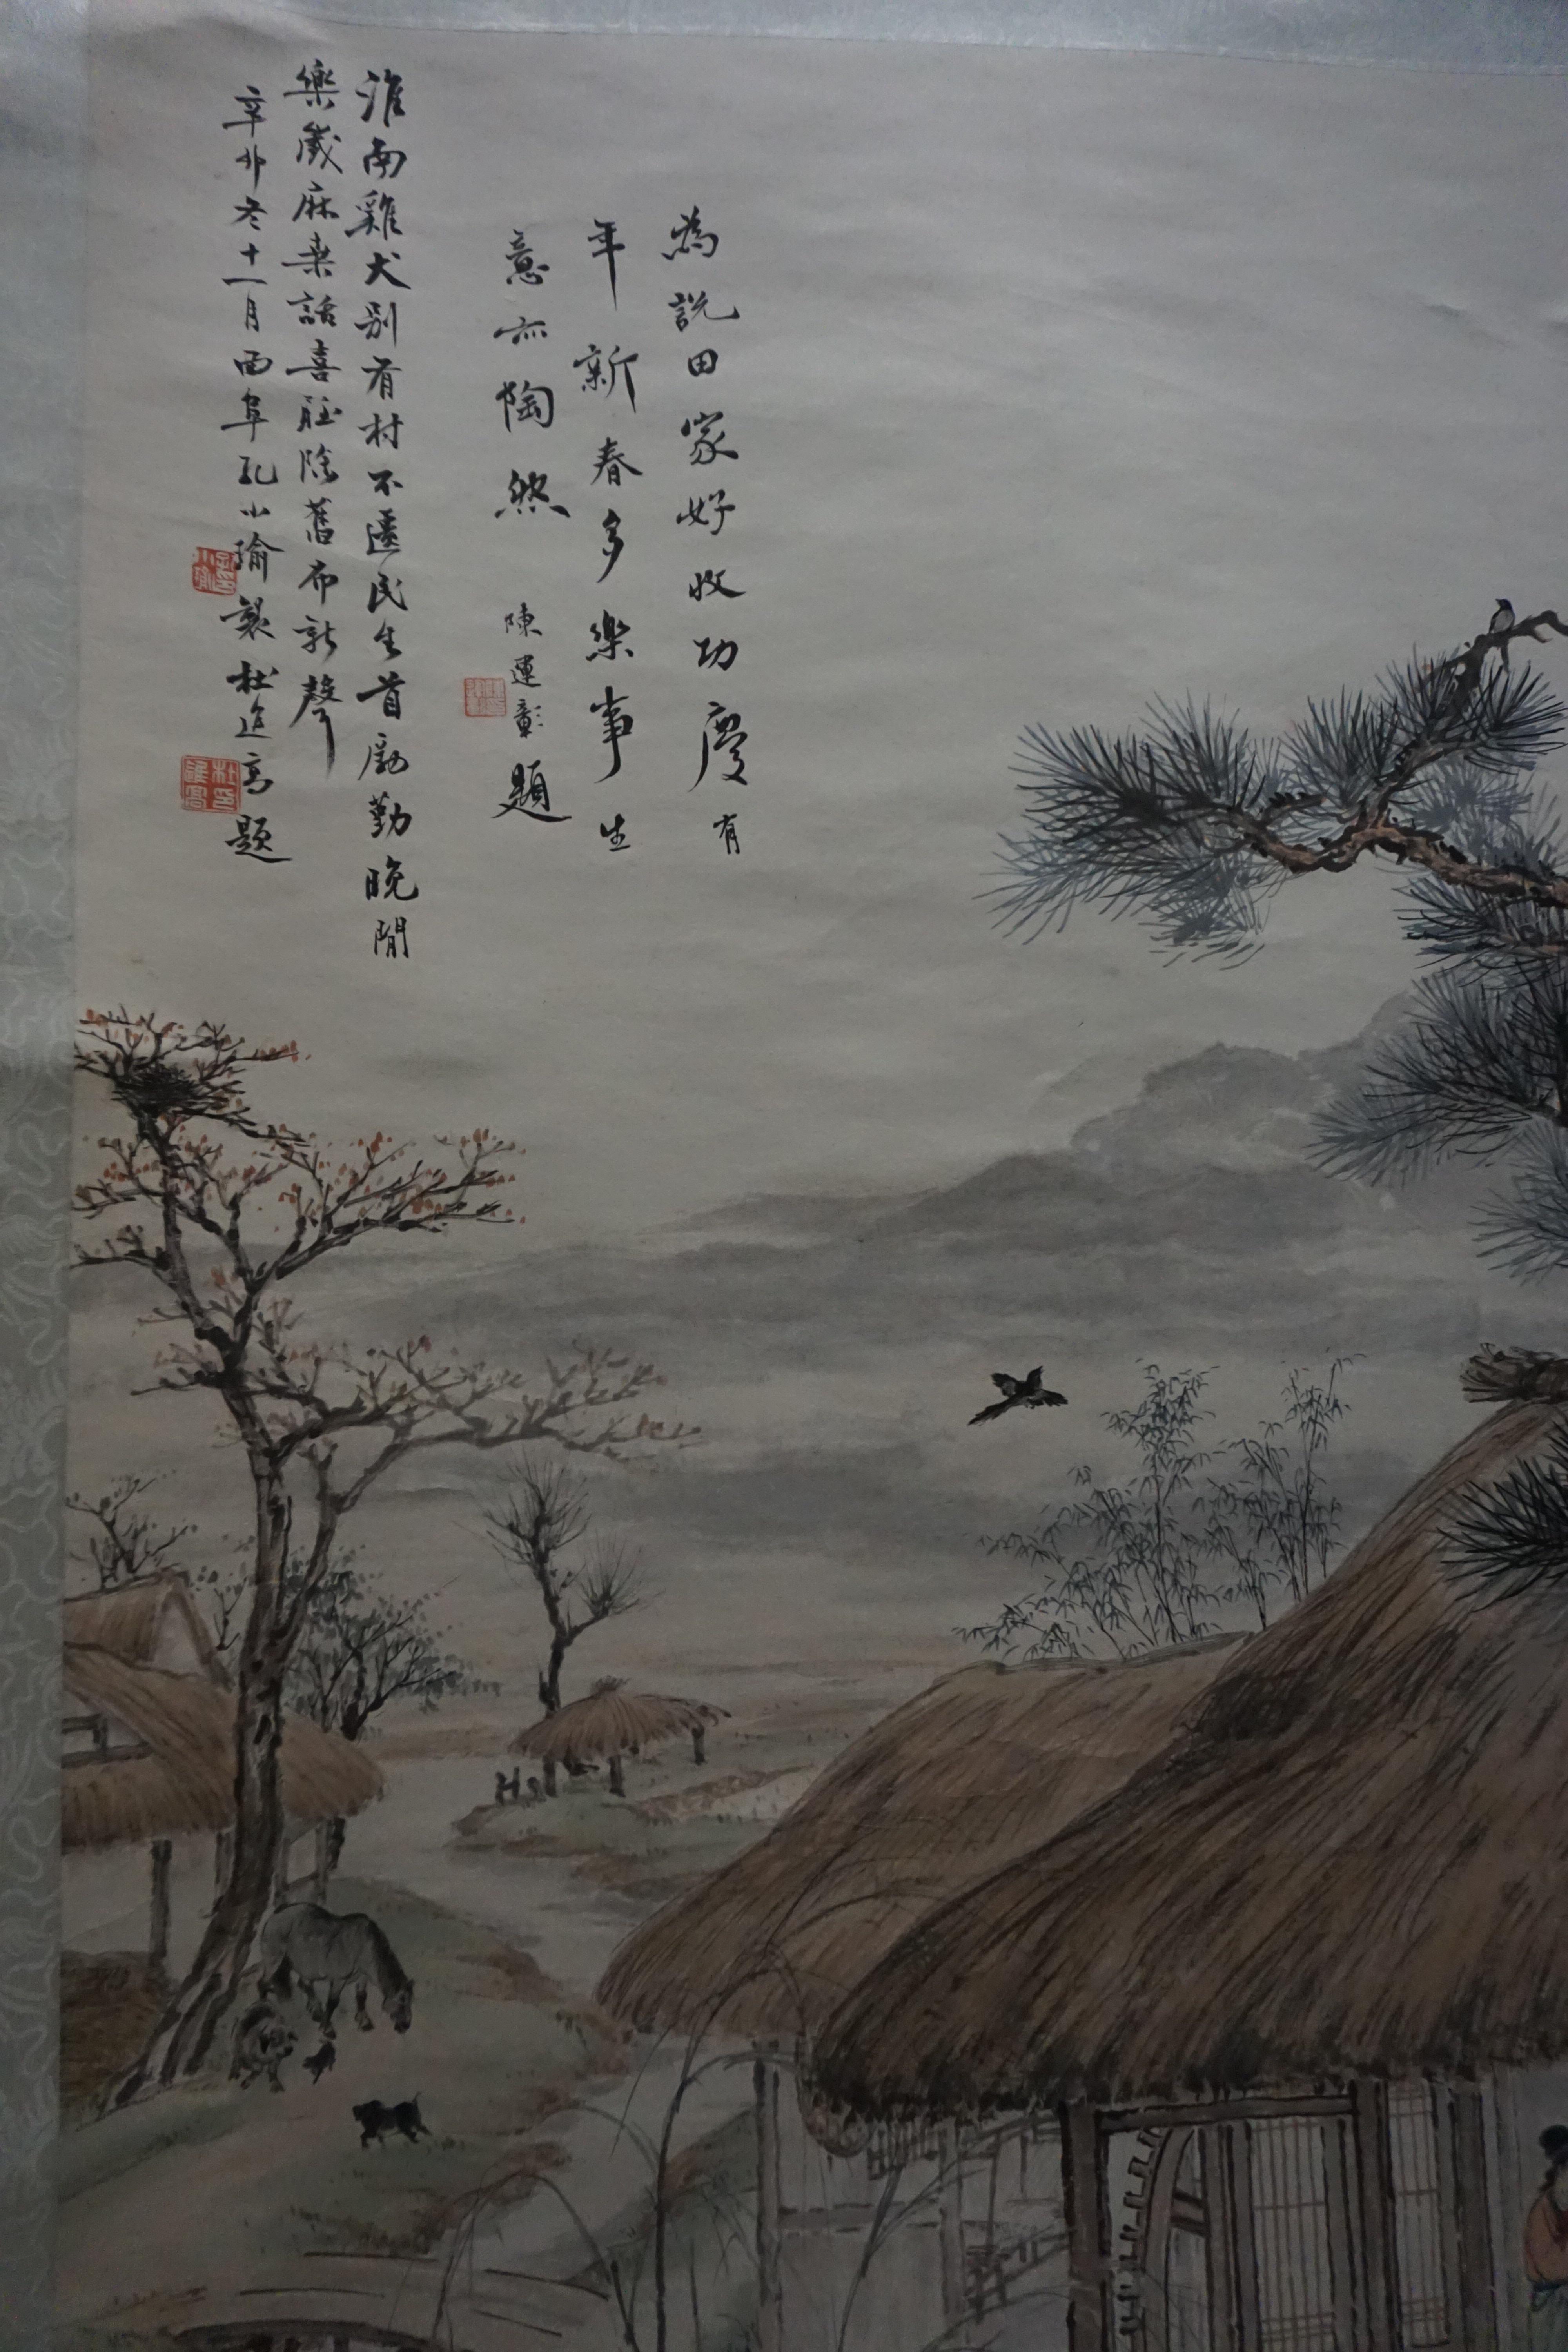 為說田家好收功慶有
年新春多樂事生
意亦陶然 陳運彰題
淮南雞犬別有村不民生首勵勤晚閒
樂歲麻桒話喜聽除舊布新聲
辛卯冬十一月曲阜孔小瑜製杜進高題
杜印進高